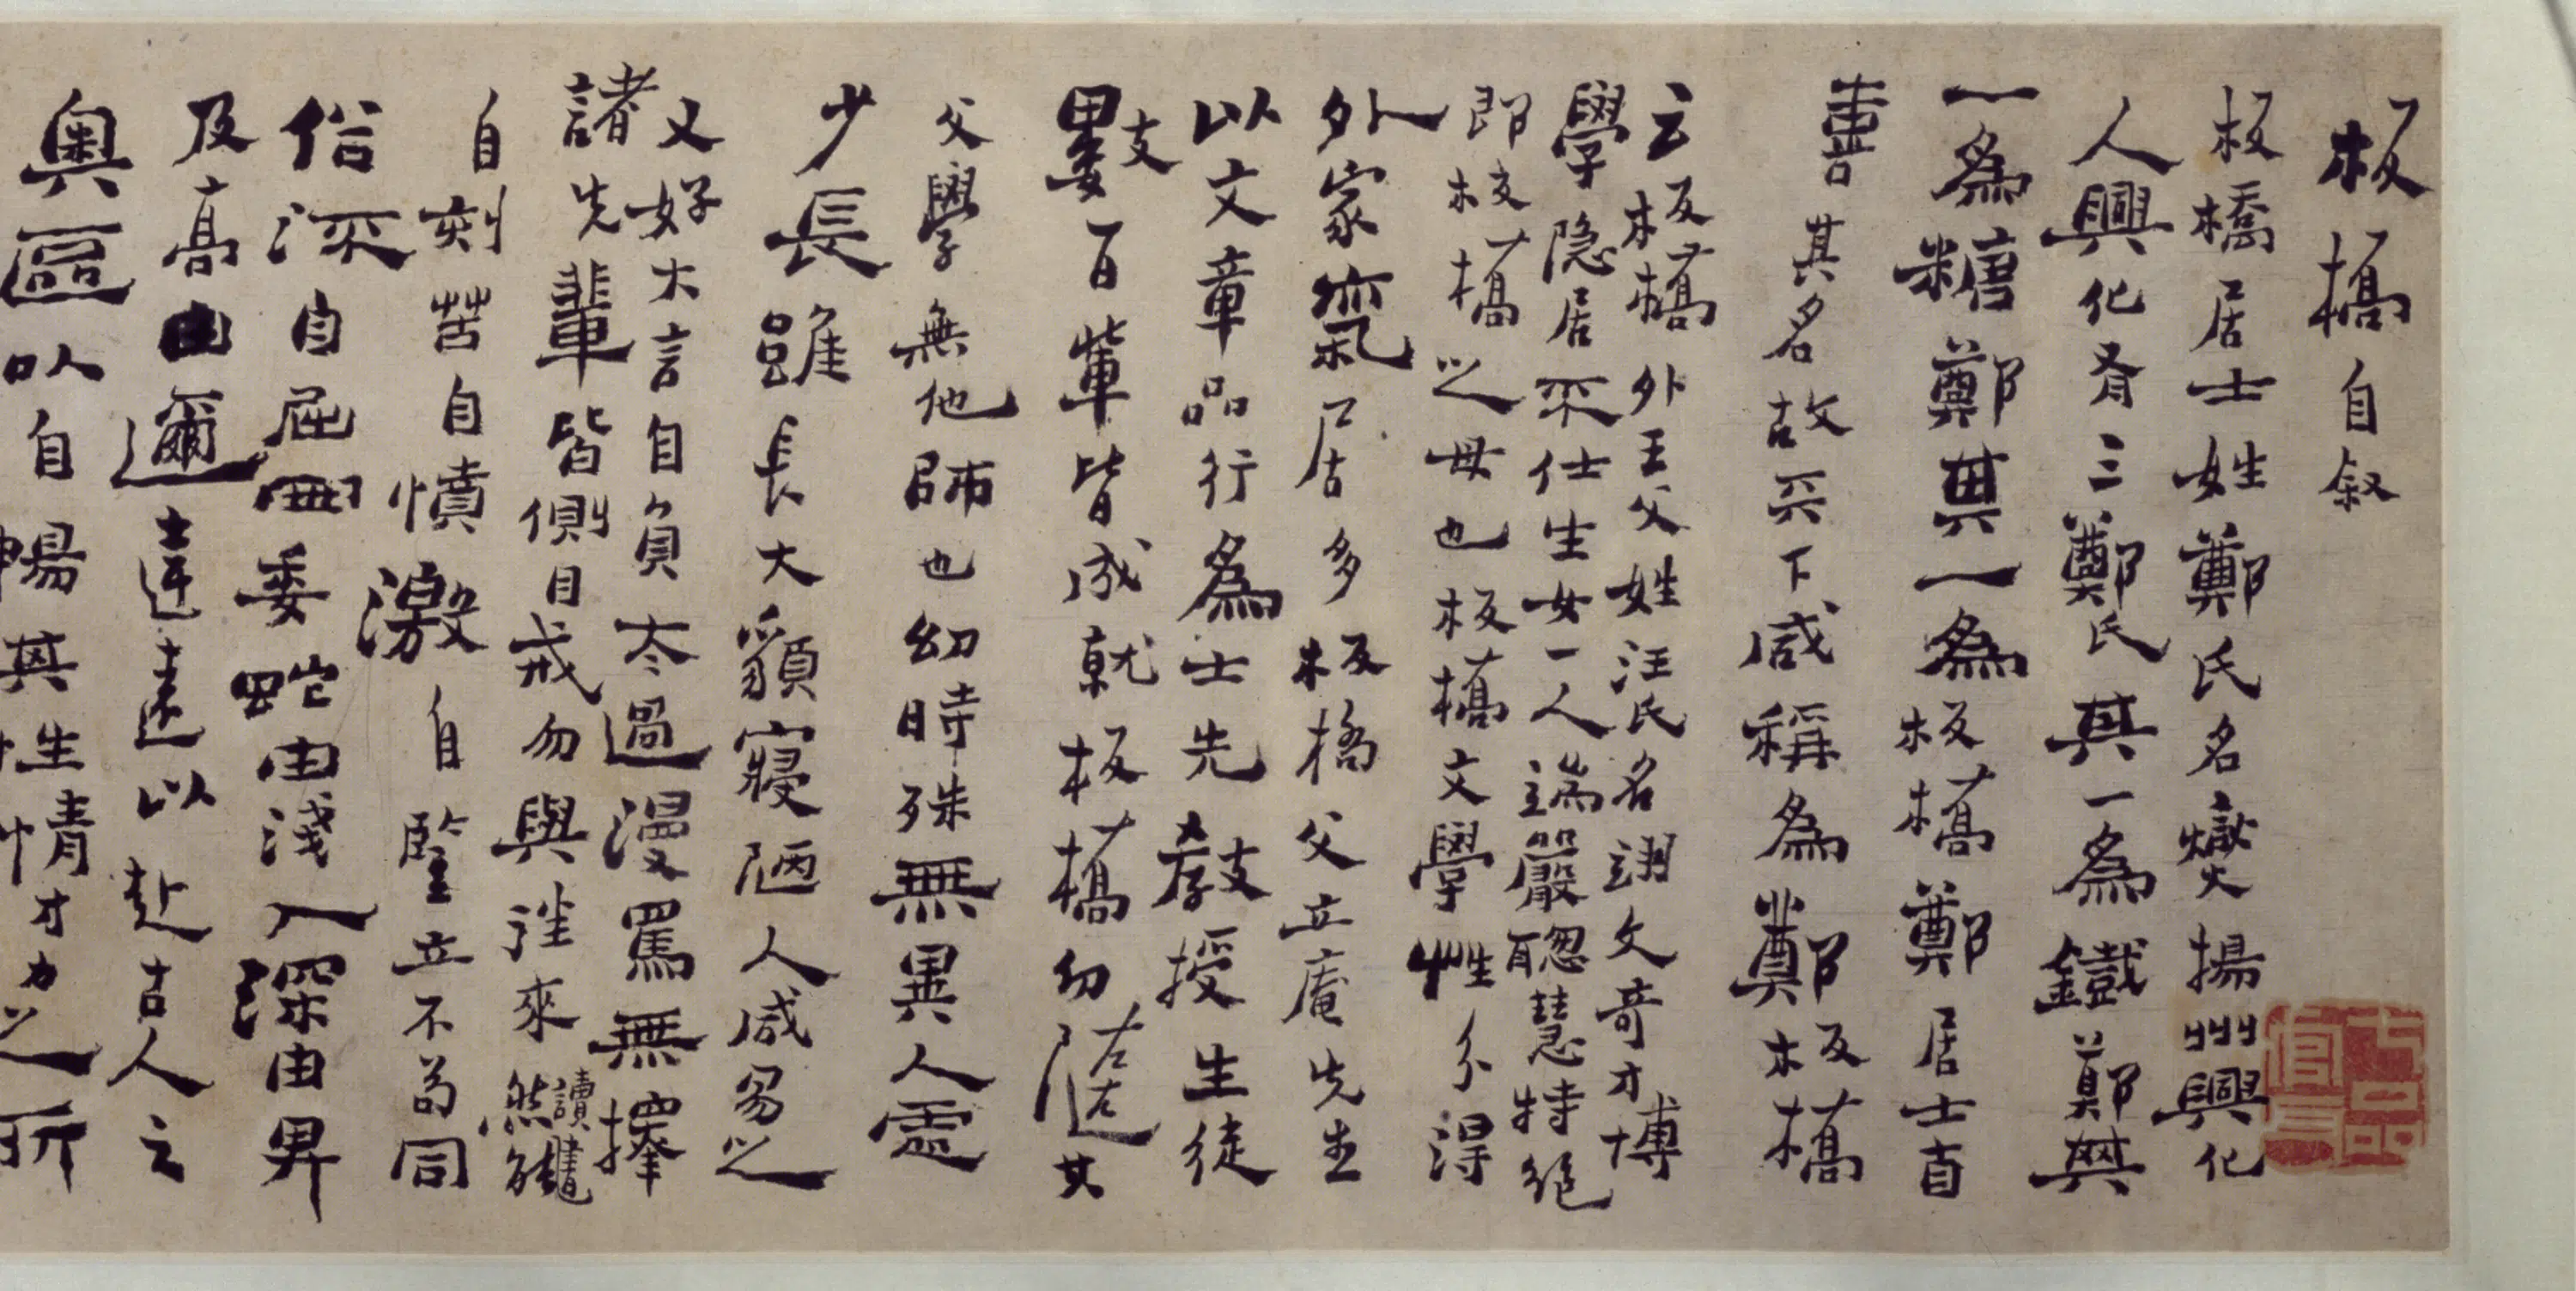 板橋自敘
板橋居士姓鄭氏名燮揚州興化
人興化有三鄭氏其一為鐵鄭其
一為糖鄭其一為板橋鄭居士自
喜其名故天下咸稱為鄭板橋
云板橋外王父姓汪氏名翊文奇才博
學隱居不仕生女一人端嚴聰慧特絕
即板橋之母也板橋文學性分得
外家氣居多板橋父立庵先生
以文章品行為士先教授生徒
數百輩皆成就板橋幼隨其
父學無他師也幼時殊無異人處
少長雖長大貌寢陋人咸易之
又好大言自負太過漫罵無擇
諸先輩皆側目戒勿與往來然讀書能
自刻苦自憤激自豎立不苟同
俗深自屈曲委蛇由淺入深由卑
及高由邇達遠以赴古人之
奧區以自暢其性情才力之所
七品官耳